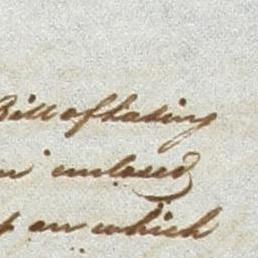 Bill of Lading
enclosed
on which